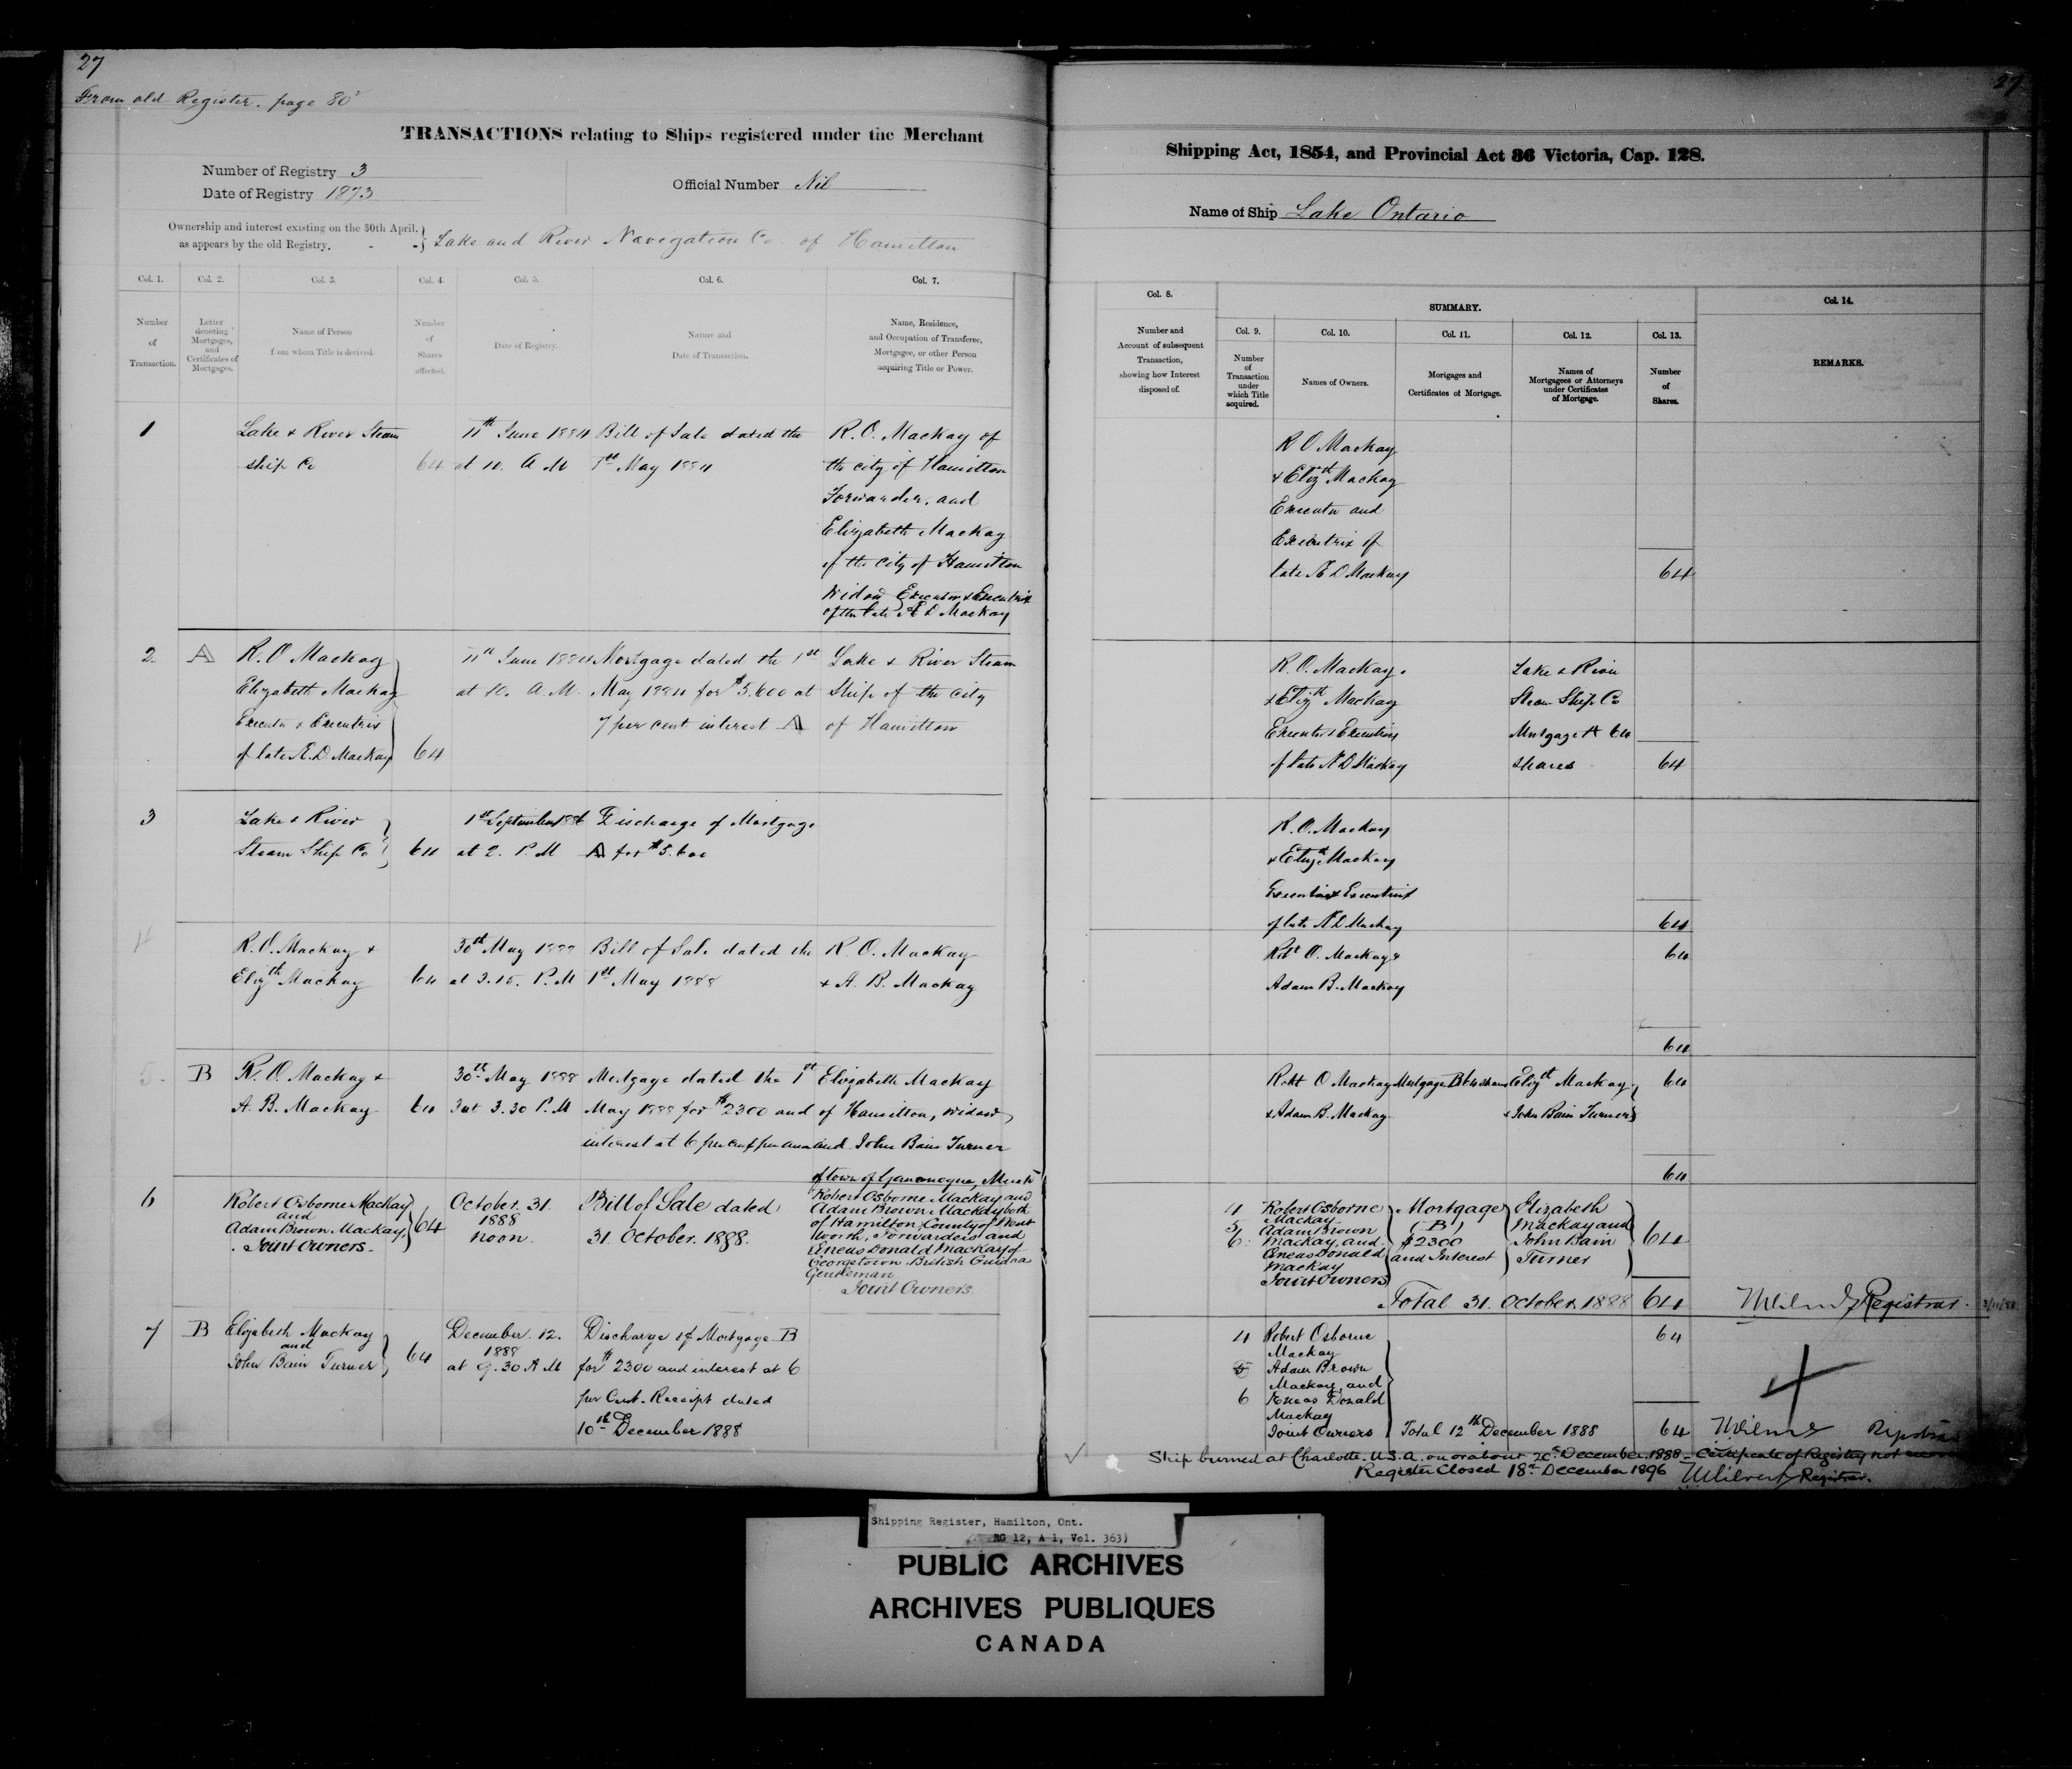 27
27
From old Register. page 80
TRANSACTIONS relating to Ships registered under the Merchant
Shipping Act, 1854, and Provincial Act 36 Victoria, Cap. 128.
Number of Registry 3
Date of Registry 1873
Official Number Nil
Name of Ship Lake Ontario
Ownership and interest existing on the 30th April.
as appears by the old Registry. - -
Lake and River Navegation Co of Hamilton
Col. 1.
Number
of
Transaction.
Col. 2.
Letter
denoting
Mortgages,
and
Certificates of
Mortgages.
Col. 3.
Name of Person
from whom Title is derived.
Col. 4.
Number
of
Shares
affected.
Col. 5.
Date of Registry.
Col. 6.
Nature and
Date of Transaction.
Col. 7.
Name, Residence,
and Occupation of Transferee,
Mortgagee, or other Person
acquiring Title or Power.
Col. 8.
Number and
Account of subsequent
Transaction,
showing how Interest
disposed of.
SUMMARY.
Col. 9.
Number
of
Transaction
under
which Title
acquired.
Col. 10.
Names of Owners.
Col. 11.
Mortgages and
Certificates of Mortgage.
Col. 12.
Names of
Mortgagees or Attorneys
under Certificates
of Mortgage.
Col. 13.
Number
of
Shares.
Col. 14.
REMARKS.
1
Lake & River Steam
ship Co
64
11th June 1884
at 10. A M
Bill of Sale dated the
1st May 1884
R. O. Mackay of
the city of Hamilton
Forwarder, and
Elizabeth Mackay
of the city of Hamilton
Widow Executor & Executrix
of the late Æ D Mackay
R O Mackay
& Elizth Mackay
Executor and
Executrix of
late Æ D Mackay
64
2
A
R. O Mackay
Elizabeth Mackay
Executor & Executrix
of late Æ. D. Mackay
64
11th June 1884
at 10. A. M.
Mortgage dated the 1st
May 1884 for $5.600 at
7 per cent interest A
Lake & River Steam
Ship of the city
of Hamilton
R. O. Mackay.
& Elizth Mackay
Executor & Executrix
of late Æ D Mackay
Lake & River
Steam Ship Co
Mortgage A 64
shares
64
3
Lake & River
Steam Ship Co
64
1st September 1886
at 2. P. M
Discharge of Mortgage
A for $5.600
R. O. Mackay
& Elizth Mackay
Executor & Executrix
of late Æ D Mackay
64
4
R. O. Mackay &
Elizth Mackay
64
30th May 1888
at 3.15. P. M
Bill of Sale dated the
1st May 1888
R. O. Mackay
& A. B. Mackay
Robt O. Mackay &
Adam B. Mackay
64
64
5.
B
R. O. Mackay &
A. B. Mackay
64
30th May 1888
at 3.30 P. M
Mortgage dated the 1st
May 1888 for $2300 and
interest at 6 per cent per annum
Elizabeth Mackay
of Hamilton, Widow
and John Bain Turner
of town of Gananoque,
Robt O Mackay
& Adam B. Mackay
Mortgage B 64 shares
Elizth Mackay
& John Bain Turner
64
64
6
Robert Osborne Mackay
and
Adam Brown Mackay,
Joint Owners.
64
October. 31.
1888
noon.
Bill of Sale dated
31. October. 1888.
Robert Osborne Mackay and
Adam Brown Mackay both
of Hamilton, County of Went
worth, Forwarders and
Æneas Donald Mackay of
Georgetown British Guiana
Gentleman
Joint Owners.
4
5
6.
Robert Osborne
Mackay
Adam Brown
Mackay, and
Æneas Donald
Mackay
Joint Owners
Mortgage
(B)
$2300
and Interest
Elizabeth
Mackay and
John Bain
Turner
64
Total 31. October. 1888
64
Registrar.
7
B
Elizabeth Mackay
and
John Bain Turner
64
December. 12.
1888
at 9.30 A M
Discharge of Mortgage B
for $2300 and interest at 6
per Cent. Receipt dated
10th December 1888
4
5
6
Robert Osborne
Mackay
Adam Brown
Mackay and
Æneas Donald
Mackay
Joint Owners
64
Total 12th December 1888
64
Registrar
Ship burned at Charlotte. U.S.A. on or about 20th December. 1888 - Certificate of Registry not
Register Closed 18th December 1896 Registrar.
Shipping Register, Hamilton, Ont.
RG 12, A 1, Vol. 363)
PUBLIC ARCHIVES
ARCHIVES PUBLIQUES
CANADA